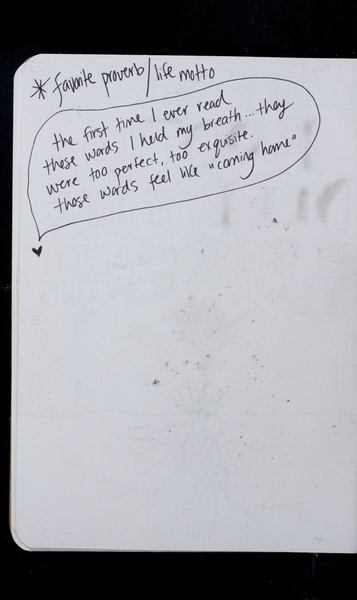 * favorite proverb/life motto
the first time I ever read
those words I held my breath... they
were too perfect, too exquisite.
those words feel like "coming home"